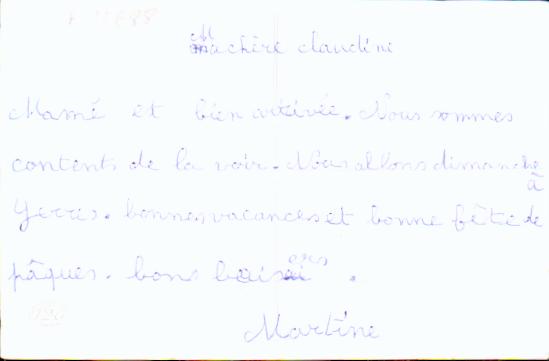 Ma chère claudine
Mamé et bien arrivée. Nous sommes
contents de la voir. Nous allons dimanche
à
Yerres. bonnes vacances et bonne fête de
pâques. bons baisers.
Martine